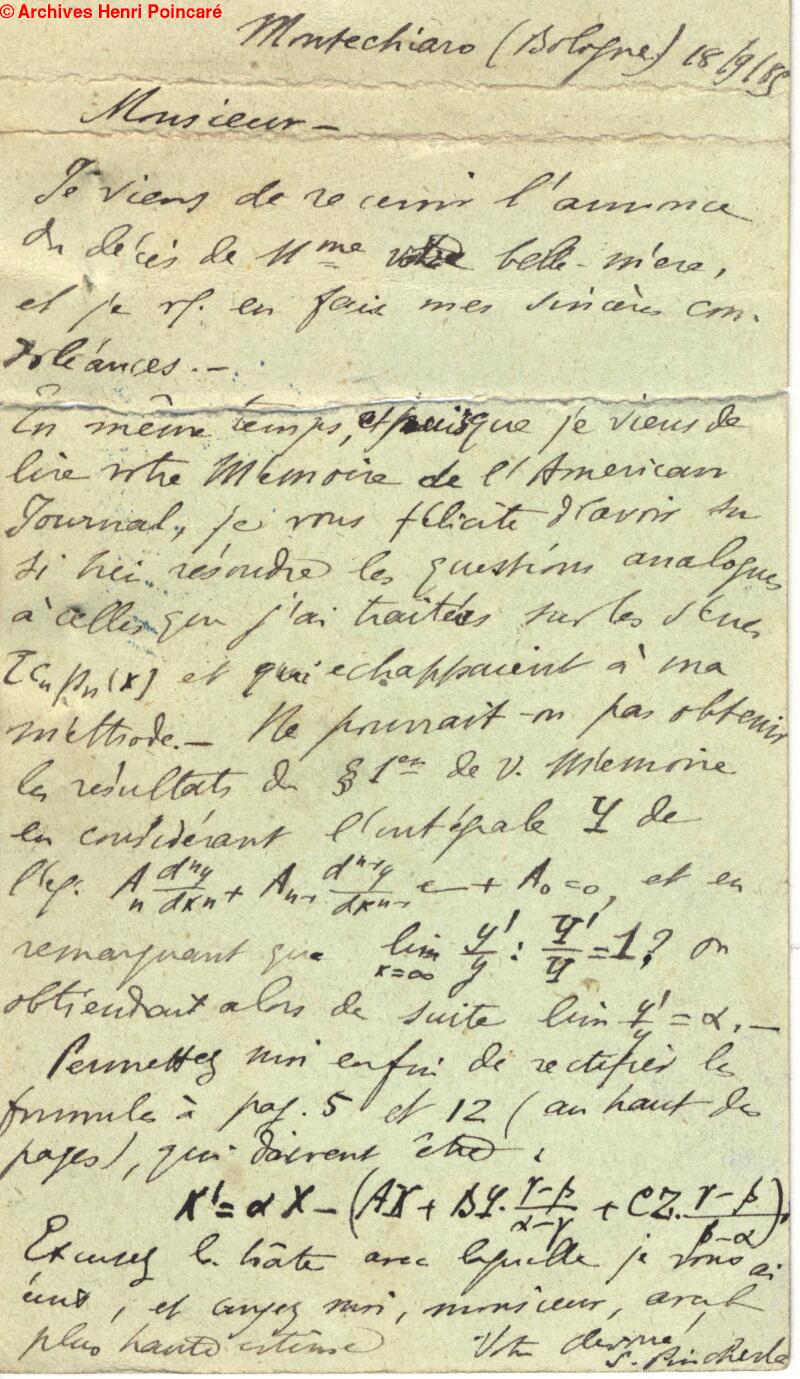 © Archives Henri Poincaré
Montechiaro (Bologne) 18/9/85
Monsieur –
Je viens de recevoir l'annonce
du décès de Mme votre belle-mère,
et je v. en fais mes sincères con-
doléances. –
En même temps, et puisque je viens de
lire votre Mémoire de l'American
Journal, je vous félicite d'avoir su
si bien résoudre les questions analogues
à celles que j'ai traitées sur les séries
Σcₙpₙ(x) et qui échappaient à ma
méthode. – Ne pourrait-on pas obtenir
les résultats du § 1er de v. Mémoire
en considérant l'intégrale Y de
l'éq. Aₙ dⁿy/dxⁿ + Aₙ₋₁ dⁿ⁻¹y/dxⁿ⁻¹ + A₀ = 0, et en
remarquant que lim x=∞ y'/y : Y'/Y = 1? on
obtiendrait alors de suite lim y'/y = α. –
Permettez moi enfin de rectifier les
formules à pag. 5 et 12 (au haut des
pages), qui doivent être :
X' = αX – (AX + BY. γ–β/α–γ + CZ. γ–β/β–α).
Excusez la hâte avec laquelle je vous ai
écrit, et croyez moi, monsieur, avec la
plus haute estime Votre dévoué,
S. Pincherle